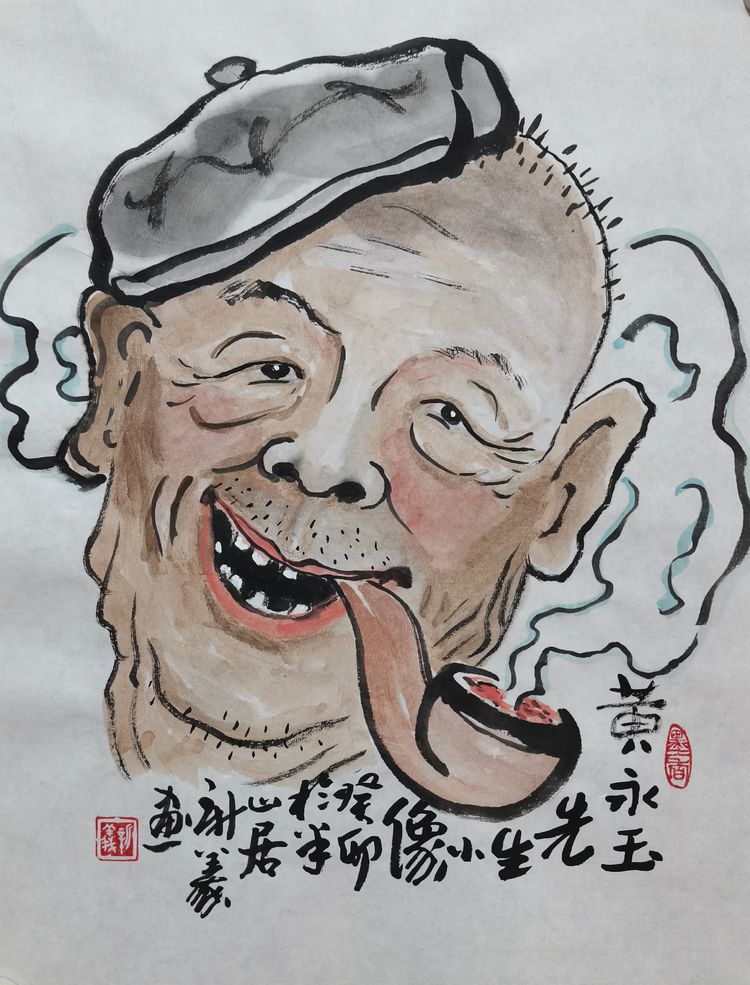 黄永玉
先生
小像
癸卯
於半
山居
新義
画
墨香